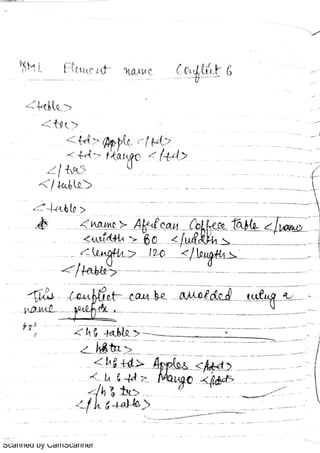 XML Element name Conflict 6
<table>
<tr>
<td> Apple </td>
<td> Mango </td>
</tr>
</table>
<table>
<name> African Coffee Table </name>
<width> 80 </width>
<length> 120 </length>
</table>
This Conflict can be avoided using a
name prefix.
<h:table>
<h:tr>
<h:td> Apples </td>
<h:td> Mango </td>
</h:tr>
</h:table>
Scanned by CamScanner